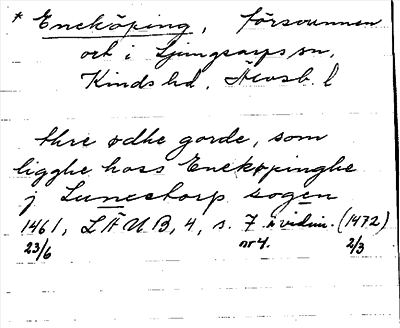 * Eneköping, försvunnen
ort i Ljungsarps sn,
Kinds hd, Älvsb. l
thre ødhe gorde, som
ligghe hoss Enekøpinghe
j Lunestorp sogen
1461, LÄUB, 4, s. 7 i vidim. (1472)
23/6 nr 4. 2/3